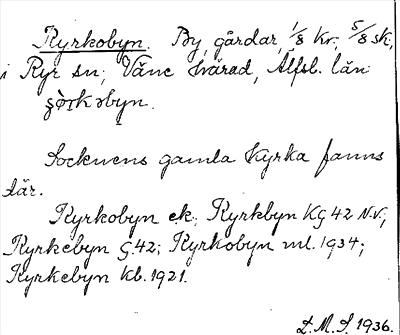 Kyrkobyn. By, gårdar, 1/8 kr, 5/8 sk,
i Ryr sn, Väne härad, Älfsb. län
Socknens gamla kyrka fanns
där.
Kyrkobyn ek; Kyrkbyn KG 42 N.V.;
Kyrkebyn G.42; Kyrkobyn ml. 1934;
Kyrkebyn kb. 1921.
1936.